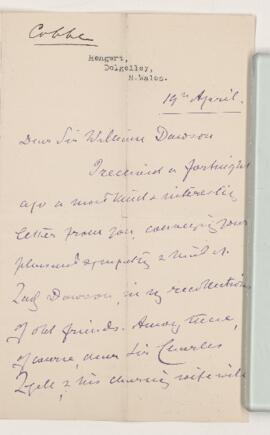 Cobbe
Hengwrt,
Dolgelley,
N.Wales.
19th April.
Dear Sir William Dawson
I received a fortnight
ago a most kind & interesting
letter from you, conveying your
pleasure & sympathy & that of
Lady Dawson, in my recollections
of old friends. Among these,
of course, dear Sir Charles
Lyell & his charming wife will